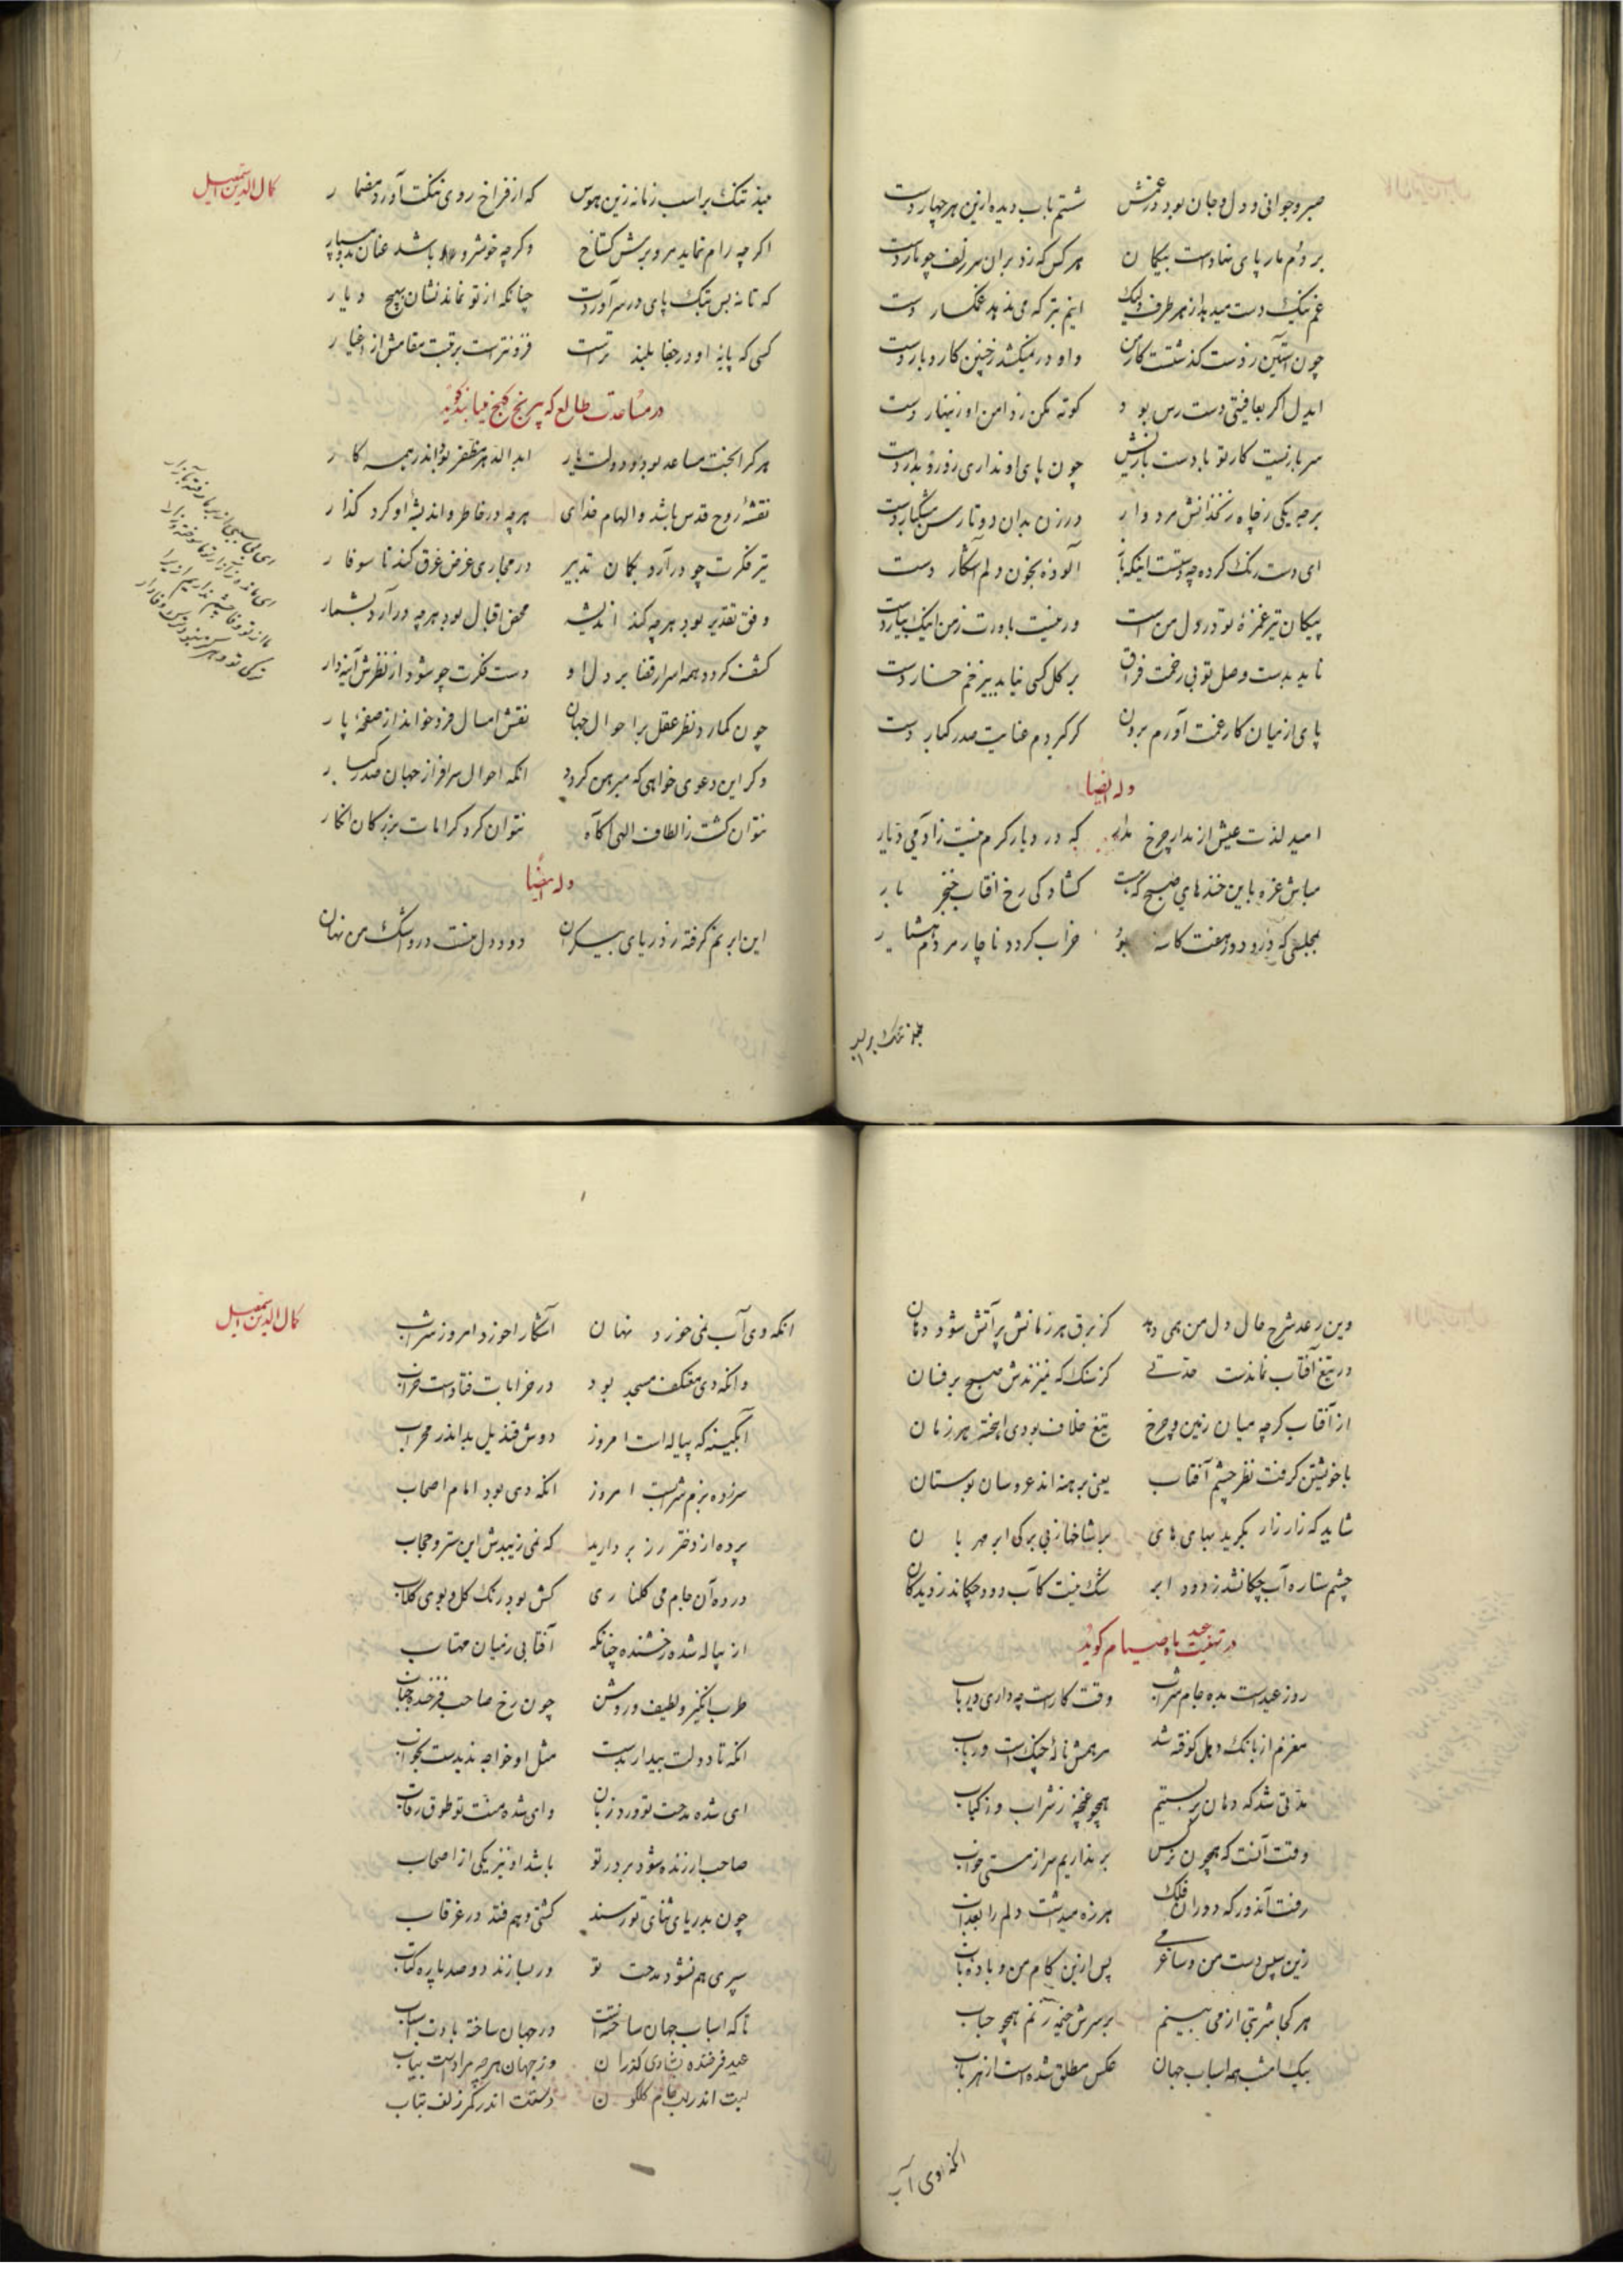 صبر و جوانی و دل و جان بود در غمش شستم بآب دیده ازین هر چهار دست
بر دم مار پای نهادست بیکمان هر کس که زد بران سر زلف چو مار دست
غم تنک دست میدهد از هر طرف ولیک اینم بتر که می ندهد غمکسار دست
چون آستین ز دست کذشتست کار من و او در نمیکشد ز چنین کار و بار دست
ایدل اکر بعافیتی دست رس بود کوته مکن ز دامن او زینهار دست
سر باز نیست کار تو با دست بازیش چون پای او نداری رو رو بدار دست
بر چه یکی ز چاه زنخدانش مردوار در زن بدان دو تا رسن مشکبار دست
ای دست رنک کرده چه دستست اینکه باز آلوده بخون دلم آشکار دست
پیکان تیر غمزهٔ تو در دل من است ور نیست باورت ز من اینک بیار دست
ناید بدست وصل تو بی زخمت فراق بر کل کسی نیابد بی زخم خار دست
پای از میان کار غمت آورم برون کر کیردم عنایت صدر کبار دست
وله ایضا
امید لذت عیش از مدار چرخ مدار که در دیار کرم نیست ز آدمی دیار
مباش غره باین خندهای صبح که هست کشادکی رخ آفتاب خنجر بار
بمجلسی که درو دور هفت کاسه بود خراب کردد ناچار مردم هشیار
کمال الدین اسمعیل
مبند تنک بر اسب زمانه زین هوس که از فراخ روی تنکت آورد مضمار
اکر چه رام نماید مرو برش کستاخ وکر چه خوشرو باشد عنان بدو مسپار
که تا نه بس بتک پای در سر آوردت چنانکه از تو نماند نشان بهیچ دیار
کسی که پایهٔ او در جفا بلند ترست فزونترست برتبت مقامش از اغیار
در مساعدت طالع که بی رنج کنج می یابند کوید
هر کرا بخت مساعد بود و دولت یار ابد الدهر مظفر بود اندر همه کار
نفثهٔ روح قدس باشد و الهام خدای هر چه در خاطر و اندیشهٔ او کرد کذار
تیر فکرت چو درآرد بکمان تدبیر در مجاری غرض غرق کند تا سوفار
وفق تقدیر بود هر چه کند اندیشه محض اقبال بود هر چه درآرد بشمار
کشف کردد همه اسرار قضا بر دل او دست فکرت چو شود از نظرش آینه دار
چون کمارد نظر عقل بر احوال جهان نقش امسال فرو خواند از صفحهٔ پار
وکر این دعوی خواهی که مبرهن کردد انکه احوال سرافراز جهان صدر کبار
نتوان کشت ز الطاف الهی آکاه نتوان کرد کرامات بزرکان انکار
وله ایضا
این ابر نم کرفته ز دریای بیکران دود دل منست درو اشک من نهان
وین رعد شرح حال دل من همی دهد کز برق هر زمانش پر آتش شود دهان
در تیغ آفتاب نماندست حدتی کز سنک که نیز ندش صبح بر فسان
از آفتاب کرچه میان زمین و چرخ تیغ خلاف بودی اهخته هر زمان
با خویشتن کرفت نظر چشم آفتاب یعنی برهنه اند عروسان بوستان
شاید که زار زار بکرید بهای های بر شاخها ز بی برکی ابر مهربان
چشم ستاره آب چکانشد ز دود ابر شک نیست کاب دود چکاند ز دیدکان
در تهنیت عید ماه صیام کوید
روز عیدست بده جام شراب وقت کارست چه داری دریاب
مغزم از بانک دهل کوفته شد مرهمش نالهٔ چنکست و رباب
مدتی شد که دهان بر بستیم همچو غنچه ز شراب و ز کباب
وقت آنست که همچون نرکس بر نداریم سر از مستی خواب
رفت آندور که دوران فلک هرزه میداشت دلم را بعذاب
زین سپس دست من و ساغر می پس ازین کام من و بادهٔ ناب
هر کجا شربتی از می بینم بر سرش خیمه زنم همچو حباب
بیک امشب همه اسباب جهان عکس مطلق شده است از هر باب
کمال الدین اسمعیل
انکه وی آب نمی خورد نهان آشکارا خورد امروز شراب
وانکه دی معتکف مسجد بود در خرابات فتادست خراب
آبکینه که پیاله است امروز دوش قندیل بد اندر محراب
سرزده بزم شرابست امروز انکه دی بود امام اصحاب
پرده از دختر رز بردارید که نمی زیبدش این ستر و حجاب
در ده آن جام می کلناری کش بود رنک کل و بوی کلاب
از پیاله شده رخشنده چنانکه آفتابی ز میان مهتاب
طرب انکیز و لطیف و روشن چون رخ صاحب فرخنده جناب
انکه تا دولت بیدار بدست مثل او خواجه ندیدست بخواب
ای شده مدحت تو ورد زبان وای شده منت تو طوق رقاب
صاحب ار زنده شود بر در تو باشد او نیز یکی از اصحاب
چون بدریای ثنای تو رسند کشتی وهم فتد در غرقاب
سپری هم نشود مدحت تو ور بسازند دو صد باره کتاب
تا که اسباب جهان ساختنست در جهان ساخته بادت اسباب
عید فرخنده بشادی کذران وز جهان هر چه مرادست بیاب
لبت اندر لب جام کلکون دستت اندر کمر زلف بتاب
انکه وی آب